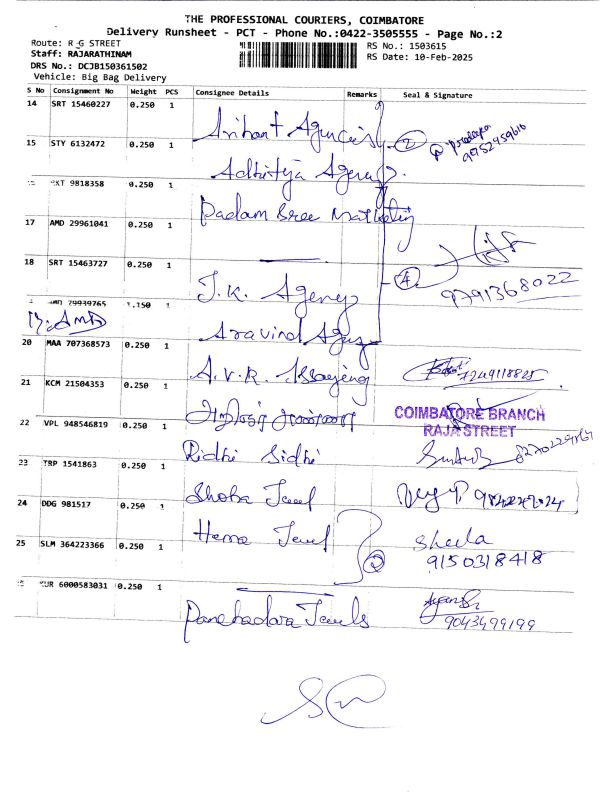 THE PROFESSIONAL COURIERS, COIMBATORE
Delivery Runsheet - PCT - Phone No.:0422-3505555 - Page No.:2
Route: R G STREET RS No.: 1503615
Staff: RAJARATHINAM RS Date: 10-Feb-2025
DRS No.: DCJB150361502
Vehicle: Big Bag Delivery
S No Consignment No Weight PCS Consignee Details Remarks Seal & Signature
14 SRT 15460227 0.250 1
Arihant Agencies 2
15 STY 6132472 0.250 1
Adhitya Agency
9818358 0.250 1
Padam Sree Marketing
17 AMD 29961041 0.250 1
18 SRT 15463727 0.250 1
J.K. Agency 4 9791368022
29939765 1.150 1
Aravind
20 MAA 707368573 0.250 1
A.V.R.
21 KCM 21504353 0.250 1
COIMBATORE BRANCH
RAJA STREET
22 VPL 948546819 0.250 1
Ridhi Sidhi
23 TRP 1541863 0.250 1
Shoba Jewel
24 DDG 981517 0.250 1
Hema Jewel Sheela
25 SLM 364223366 0.250 1 2 9150318418
6000583031 0.250 1
Panchadara Jewels
9043499199